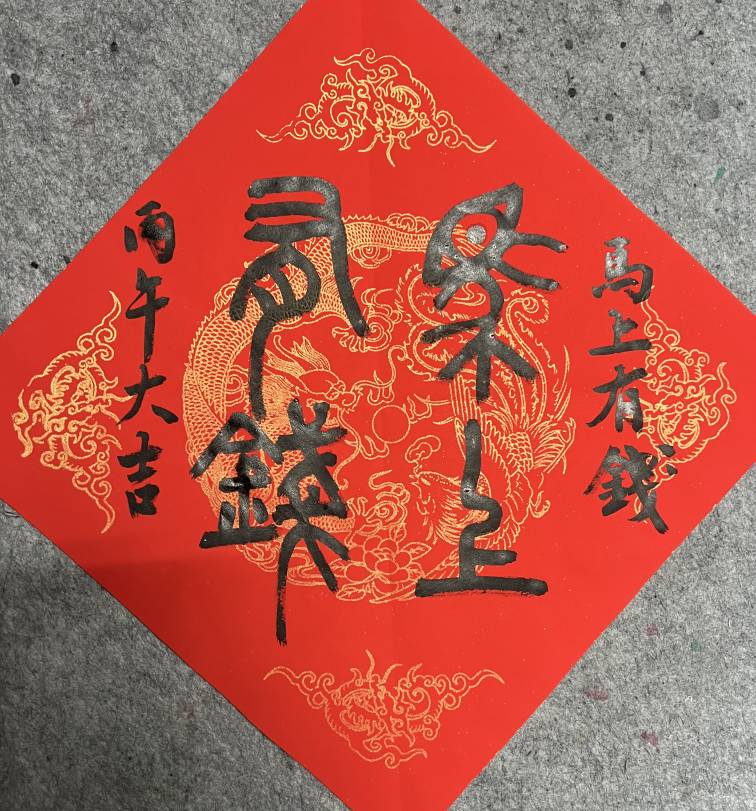 馬上有錢
馬上
有錢
丙午大吉